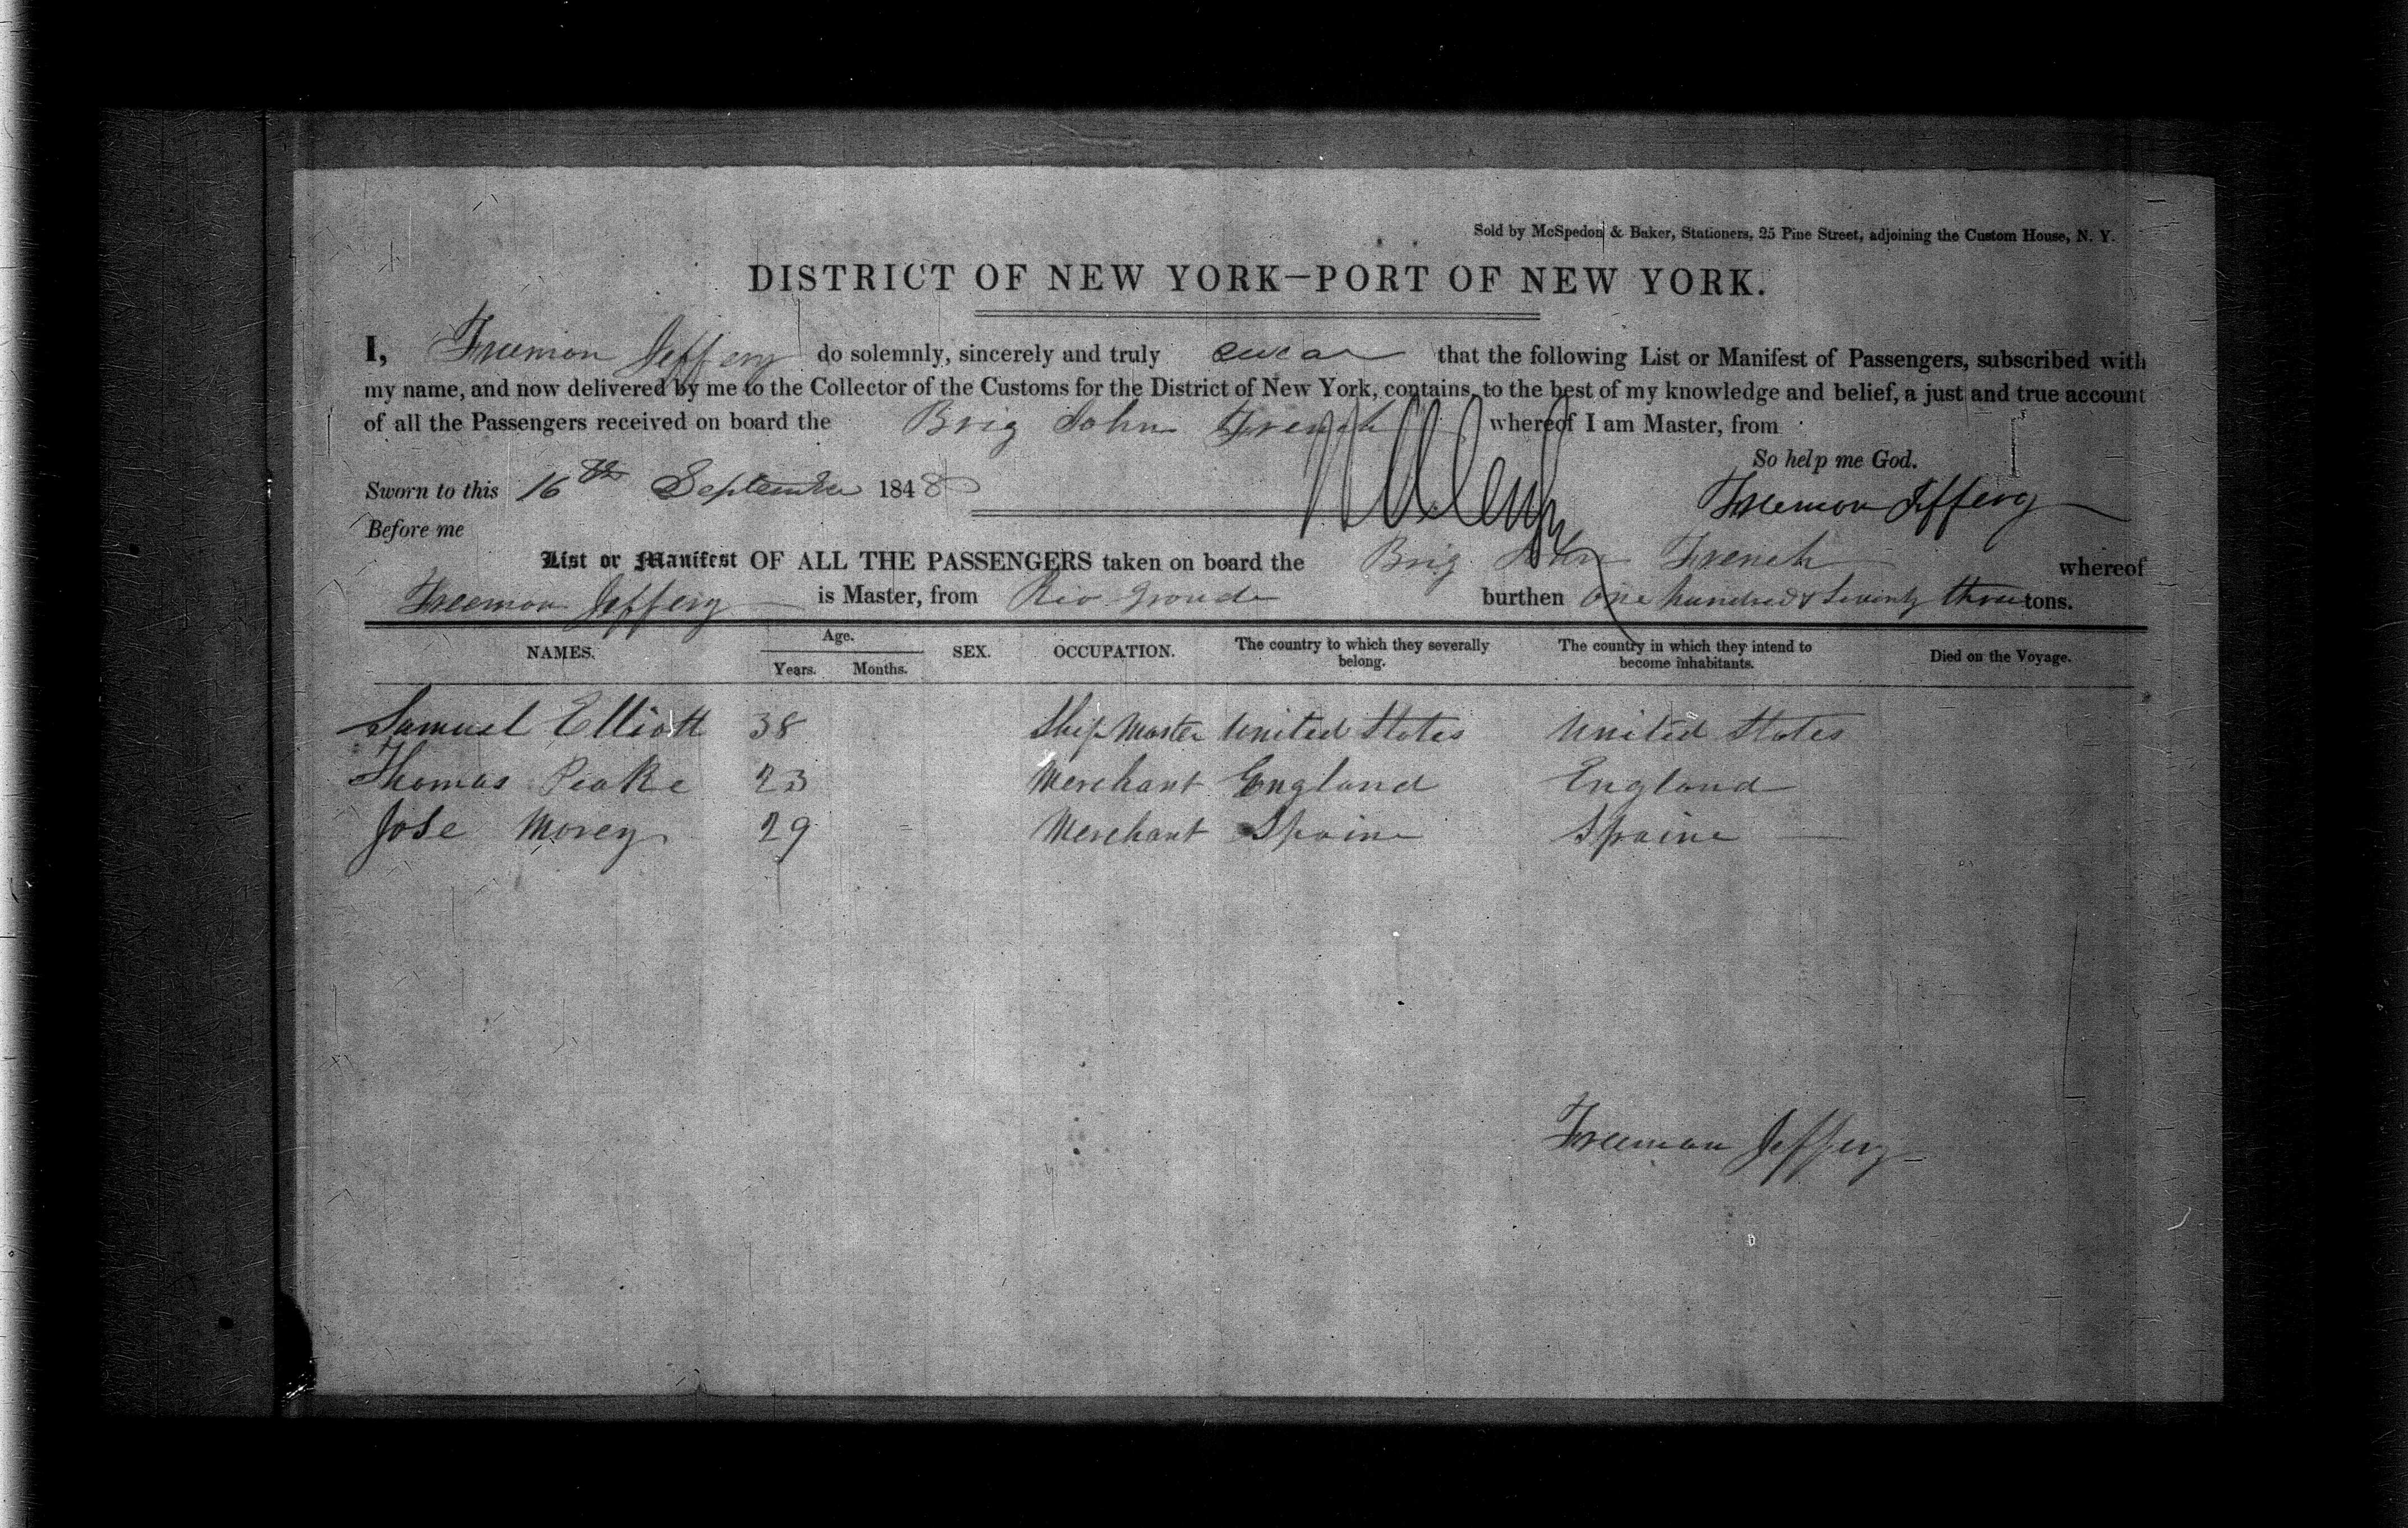 Sold by McSpedon & Baker, Stationers, 25 Pine Street, adjoining the Custom House, N. Y.
DISTRICT OF NEW YORK—PORT OF NEW YORK.
I, Freeman Jeffery do solemnly, sincerely and truly swear that the following List or Manifest of Passengers, subscribed with
my name, and now delivered by me to the Collector of the Customs for the District of New York, contains, to the best of my knowledge and belief, a just and true account
of all the Passengers received on board the Brig John French whereof I am Master, from
So help me God.
Sworn to this 16th September 1848 Freeman Jeffery
Before me
List or Manifest OF ALL THE PASSENGERS taken on board the Brig John French whereof
Freeman Jeffery is Master, from Rio Grande burthen One hundred & Seventy three tons.
NAMES. Age. Years. Months. SEX. OCCUPATION. The country to which they severally belong. The country in which they intend to become inhabitants. Died on the Voyage.
Samuel Elliott 38 Ship Master United States United States
Thomas Peake 23 Merchant England England
Jose Morey 29 Merchant Spaine Spaine
Freeman Jeffery